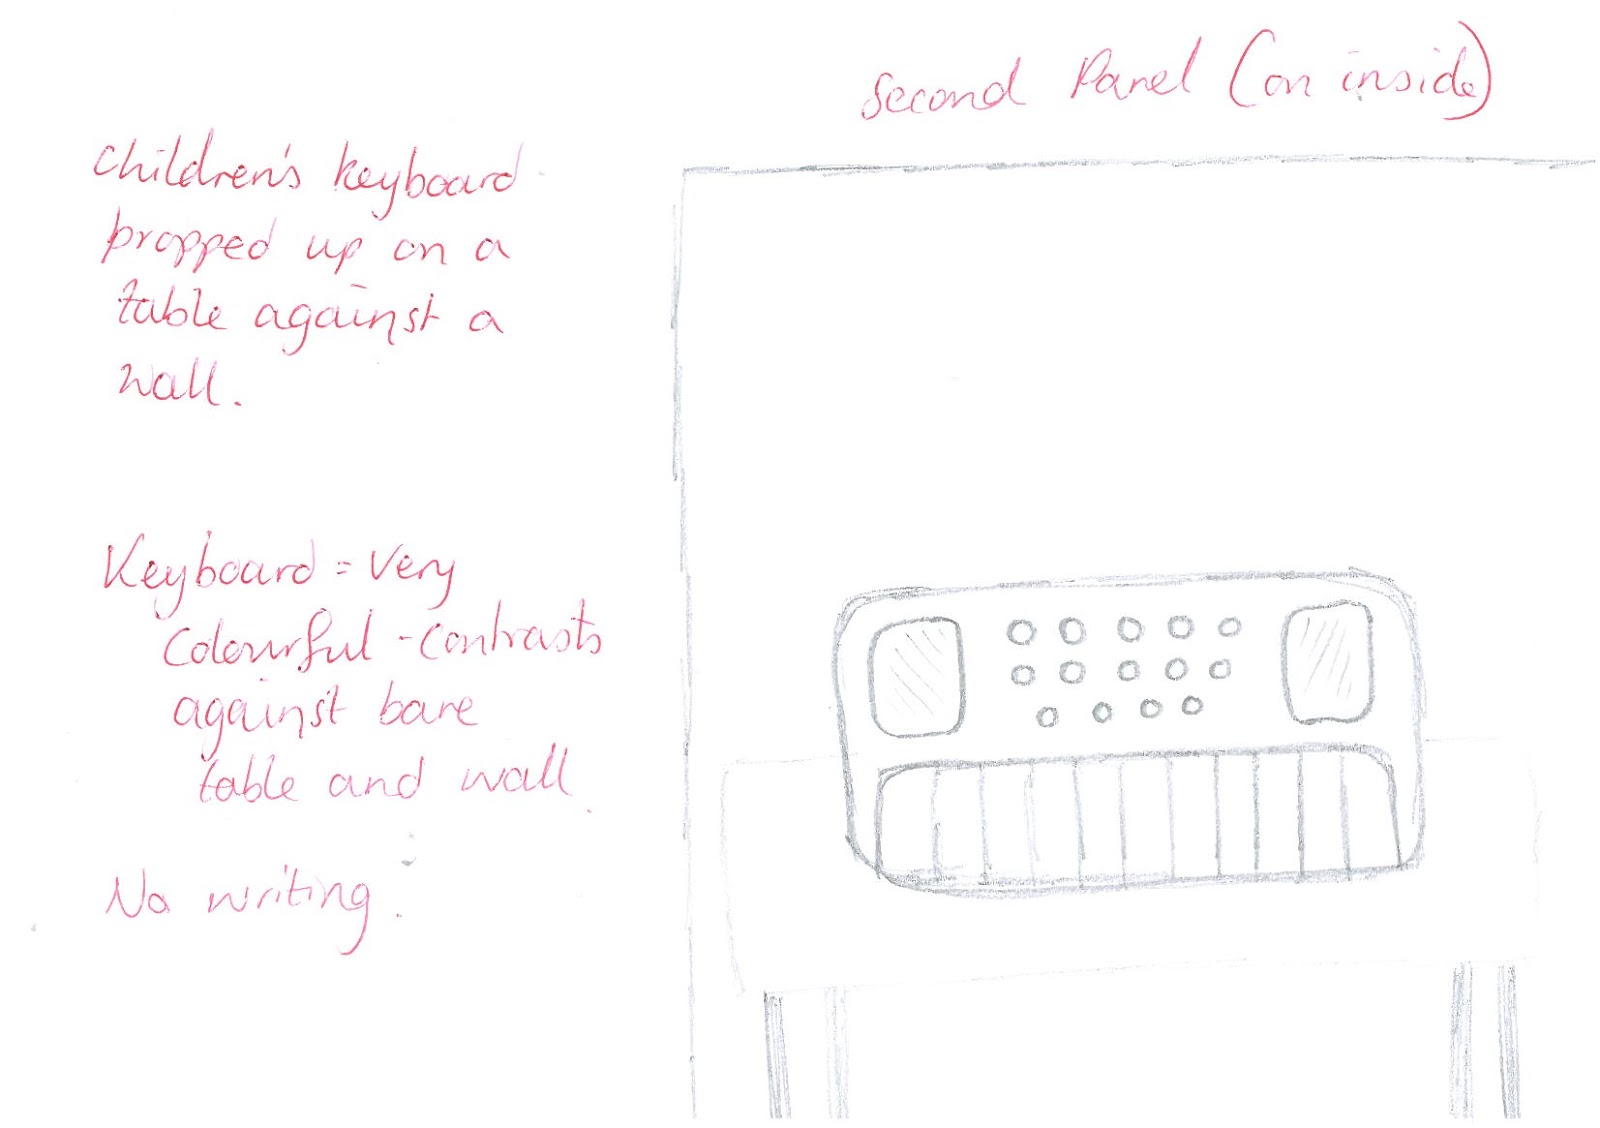 Second Panel (on inside)
Children's keyboard
propped up on a
table against a
wall.
Keyboard = Very
Colourful - contrasts
against bare
table and wall.
No writing.